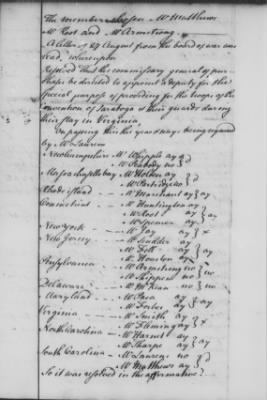 The members chosen Mr Matthews
Mr Root and Mr Armstrong.
A letter of 27 August from the board of war was
read, whereupon
Resolved That the commissary general of pur-
chases be directed to appoint a deputy for the
special purpose of providing for the troops of the
convention of Saratoga & their guards during
their stay in Virginia.
On passing this the yeas & nays being required
by Mr Laurens
New hampshire Mr Whipple ay }
Mr Peabody no }
Massachusetts bay Mr Holten ay }
Mr Partridge no }
Rhode Island Mr Marchant ay } ay
Connecticut Mr Huntington ay }
Mr Root ay } ay
Mr Spencer ay }
New York Mr Jay ay } ×
New Jersey Mr Scudder ay }
Mr Fell ay } ay
Mr Houston ay }
Pensylvania Mr Armstrong no } no
Mr Shippen no }
Delaware Mr McKean no } no
Maryland Mr Paca ay } ay
Mr Forbes ay }
Virginia Mr Smith ay }
Mr Fleming ay } ×
North Carolina Mr Harnet ay } ay
Mr Sharpe ay }
South Carolina Mr Laurens no }
Mr Matthews ay }
So it was resolved in the affirmative.